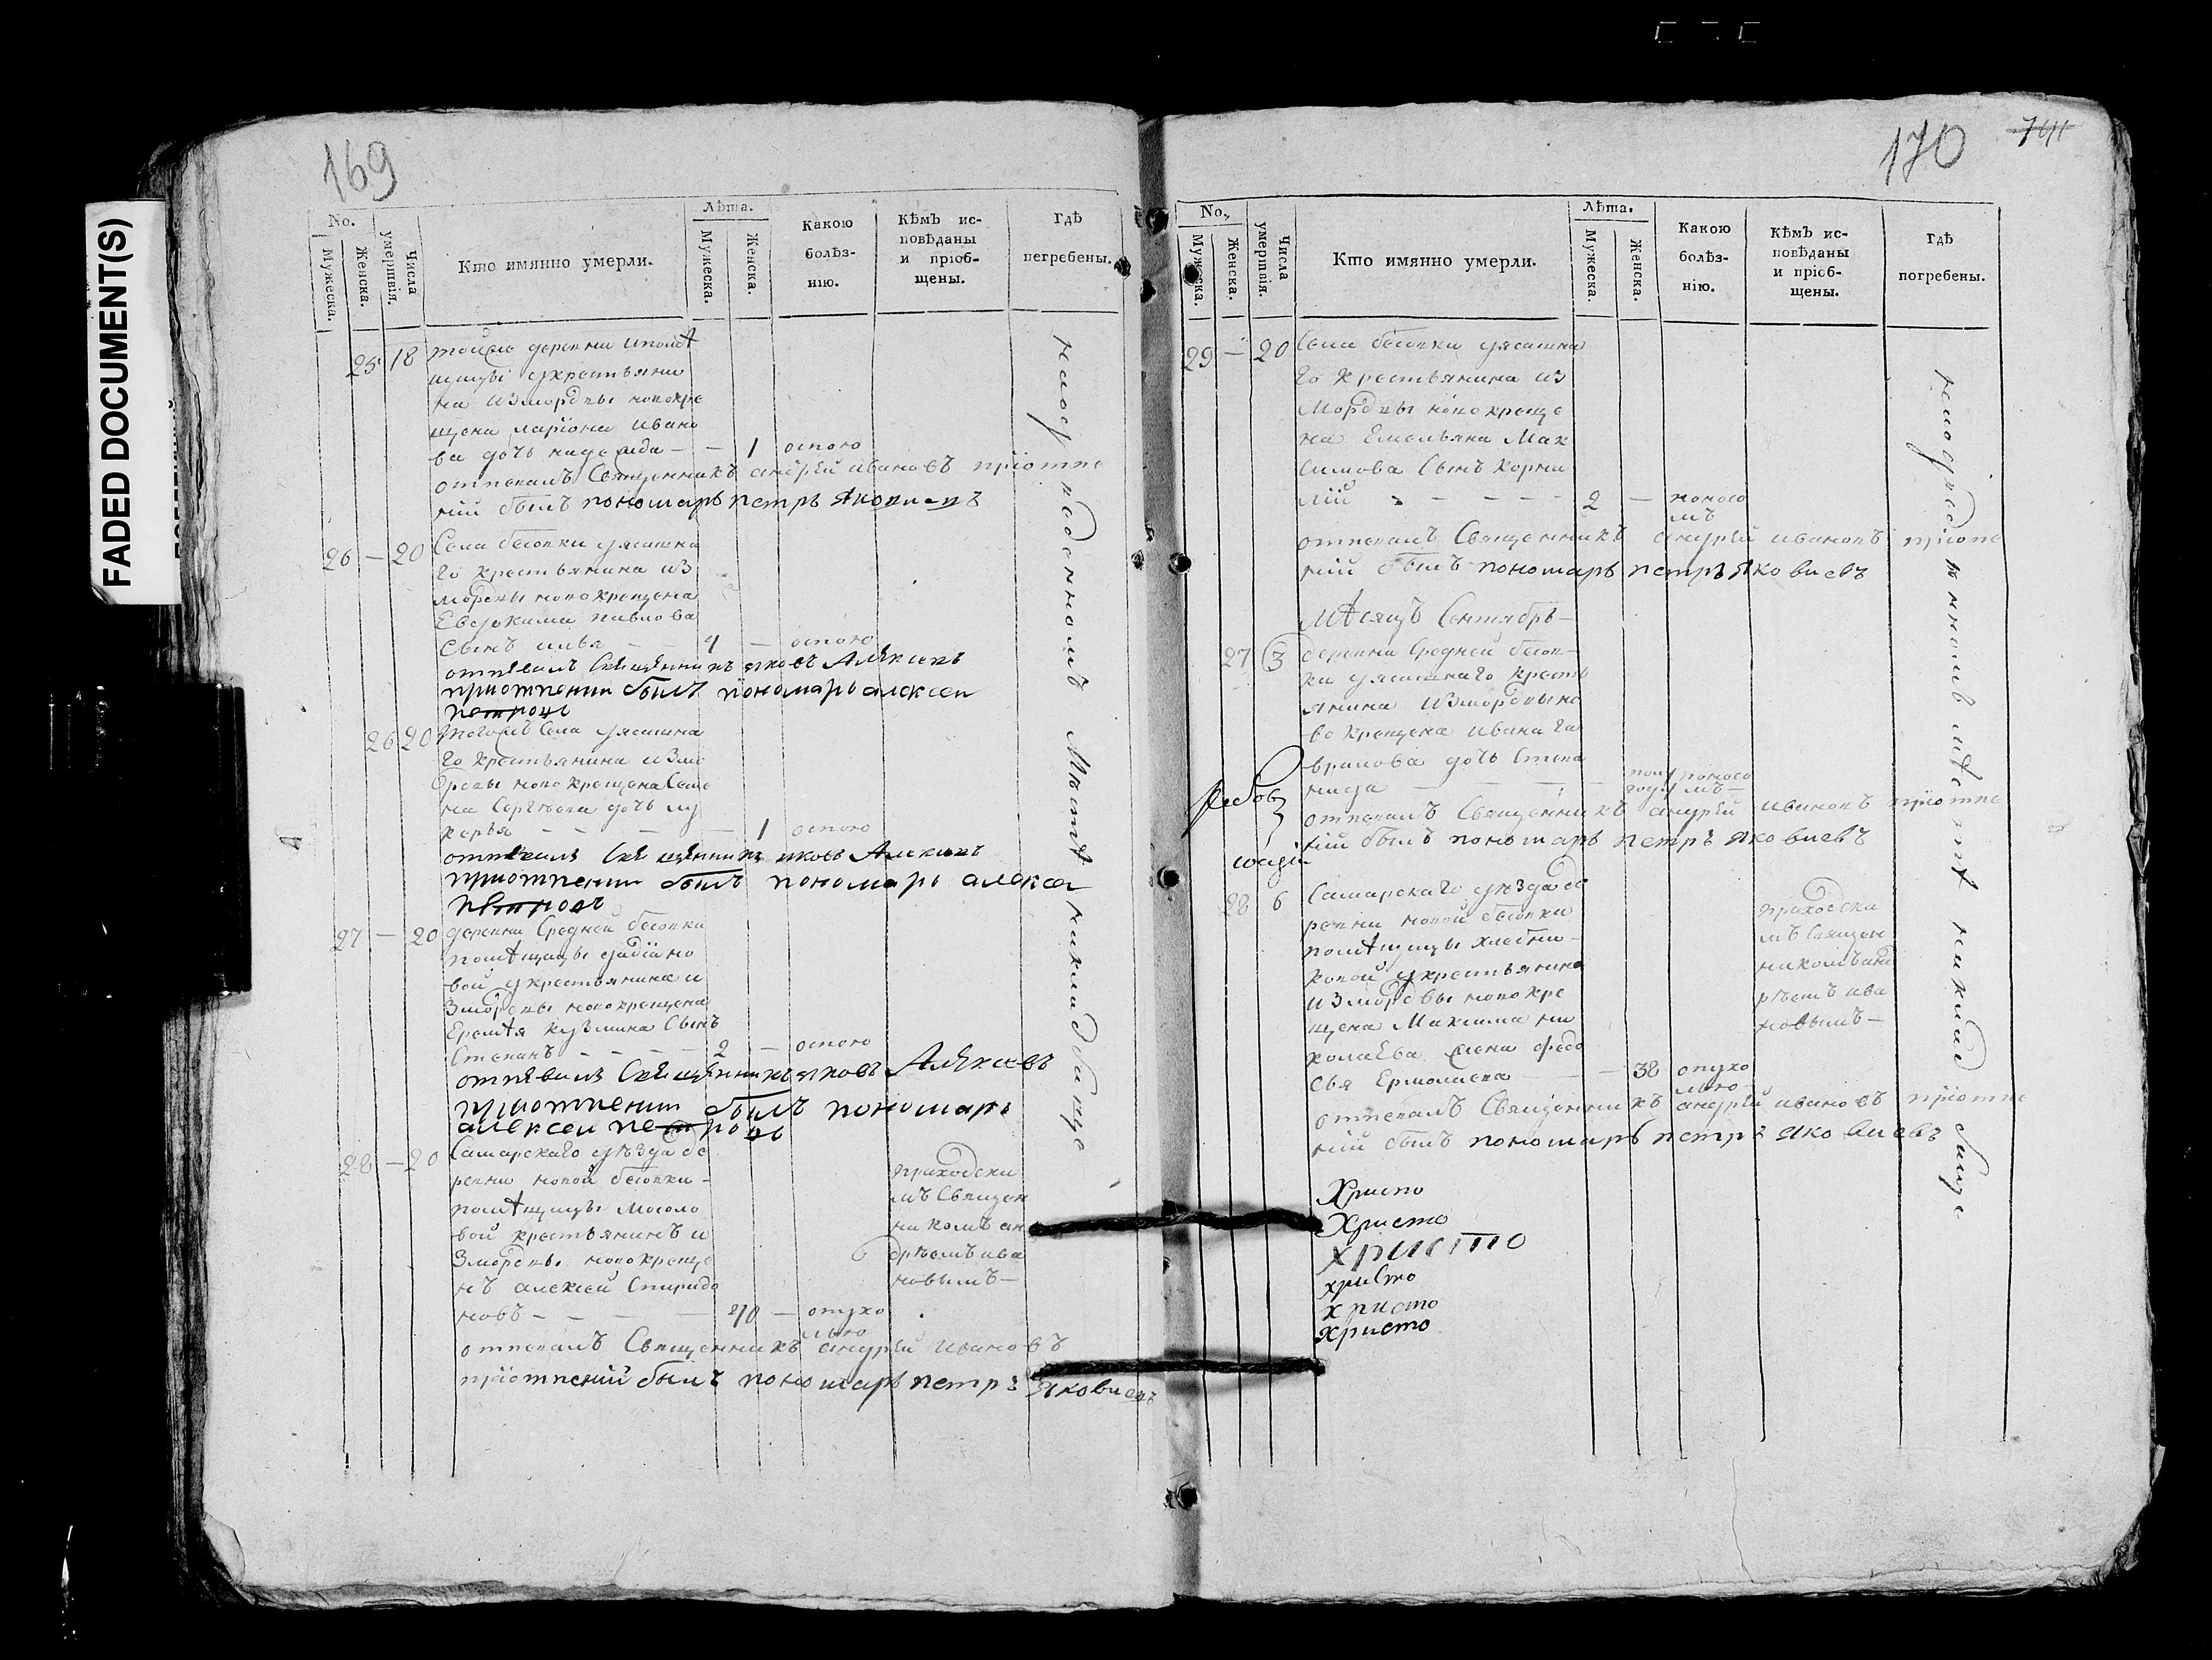 FADED DOCUMENT(S)
169
No.
Мужеска.
Женска.
Числа умертвія.
Кто имянно умерли.
Лѣта.
Мужеска.
Женска.
Какою болѣз-нію.
Кѣмъ ис-повѣданы и пріоб-щены.
Гдѣ погребены.
25 18 тойже деревни и помѣ
щицы крестьяни
на измордвы новокре
щена ларіона ивано
ва дочь надежда — — 1 оспою
отпевалъ Священникъ андрѣй ивановъ приотпе
ніи былъ пономарь петръ Яковлевъ
26 — 20 Села бесовки ясашна
го крестьянина из
мордвы новокрещена
Евдокима павлова
сынъ илья — — 4 — оспою
отпѣвалъ Священникъ яковъ Алѣксевъ
приотпении былъ пономарь алексеи
петровъ
26 20 тогожъ Села ясашна
го крестьянина измо
рдвы новокрещена Семе
на Сергѣева дочь лу
керья — — — — 1 оспою
отпѣвалъ Священникъ яковъ Алексевъ
приотпении былъ пономарь алексеи
Петровъ
27 — 20 деревни Средней бесовки
помѣщицы
вой крестьянина и
змордвы новокрещена
Еремѣя кузмина Сынъ
Степанъ — — — — 2 — оспою
отпѣвалъ Священникъ яковъ Алѣксевъ
приотпении былъ пономарь
алексеи петровъ
28 — 20 Самарскаго уѣзда де
ревни новой бесовки —
помѣщицы Мосоло
вой крестьянинъ и
змордвы новокреще
нъ алексѣй Спиридо
новъ — — — — 40 — опухо
лью
приходски
мъ Священ
никомъ ан
дрѣемъ ива
новымъ —
отпевалъ Священникъ андрѣй ивановъ
приотпеніи былъ пономарь петръ Яковлевъ
на определенномъ Мѣстѣ накладбище
170
741
No.
Мужеска.
Женска.
Числа умертвія.
Кто имянно умерли.
Лѣта.
Мужеска.
Женска.
Какою болѣз-нію.
Кѣмъ ис-повѣданы и пріоб-щены.
Гдѣ погребены.
29 — 20 Села бесовки ясашна
го крестьянина из
Мордвы новокреще
на Емельяна Мак
симова Сынъ корни
лій — — — — 2 — поносо
мъ
отпевалъ Священникъ андрѣй ивановъ приотпе
ніи былъ пономарь петръ Яковлевъ
мѣсяцъ Сентябрь —
27 3 деревни Средней бесов—
ки ясашнаго кресть
янина измордвы но
вокрещена ивана га
врилова дочь Степа
нида — — — полу году поносо
мъ —
отпевалъ Священникъ андрѣй ивановъ приотпе
ніи былъ пономарь петръ Яковлевъ
28 6 Самарскаго уѣзда де
ревни новой бесовки
помѣщицы хлебни—
ковой крестьянина
измордвы новокре
щена Максима ни
колаева жена федо
сья Ермолаева — — 38 опухо
лью
приходски
мъ Священ
никомъ анд
рѣемъ ива
новымъ —
отпевалъ Священникъ андрѣй ивановъ приотпе
ніи былъ пономарь петръ Яковлевъ
Христо
Христо
христо
христо
христо
Христо